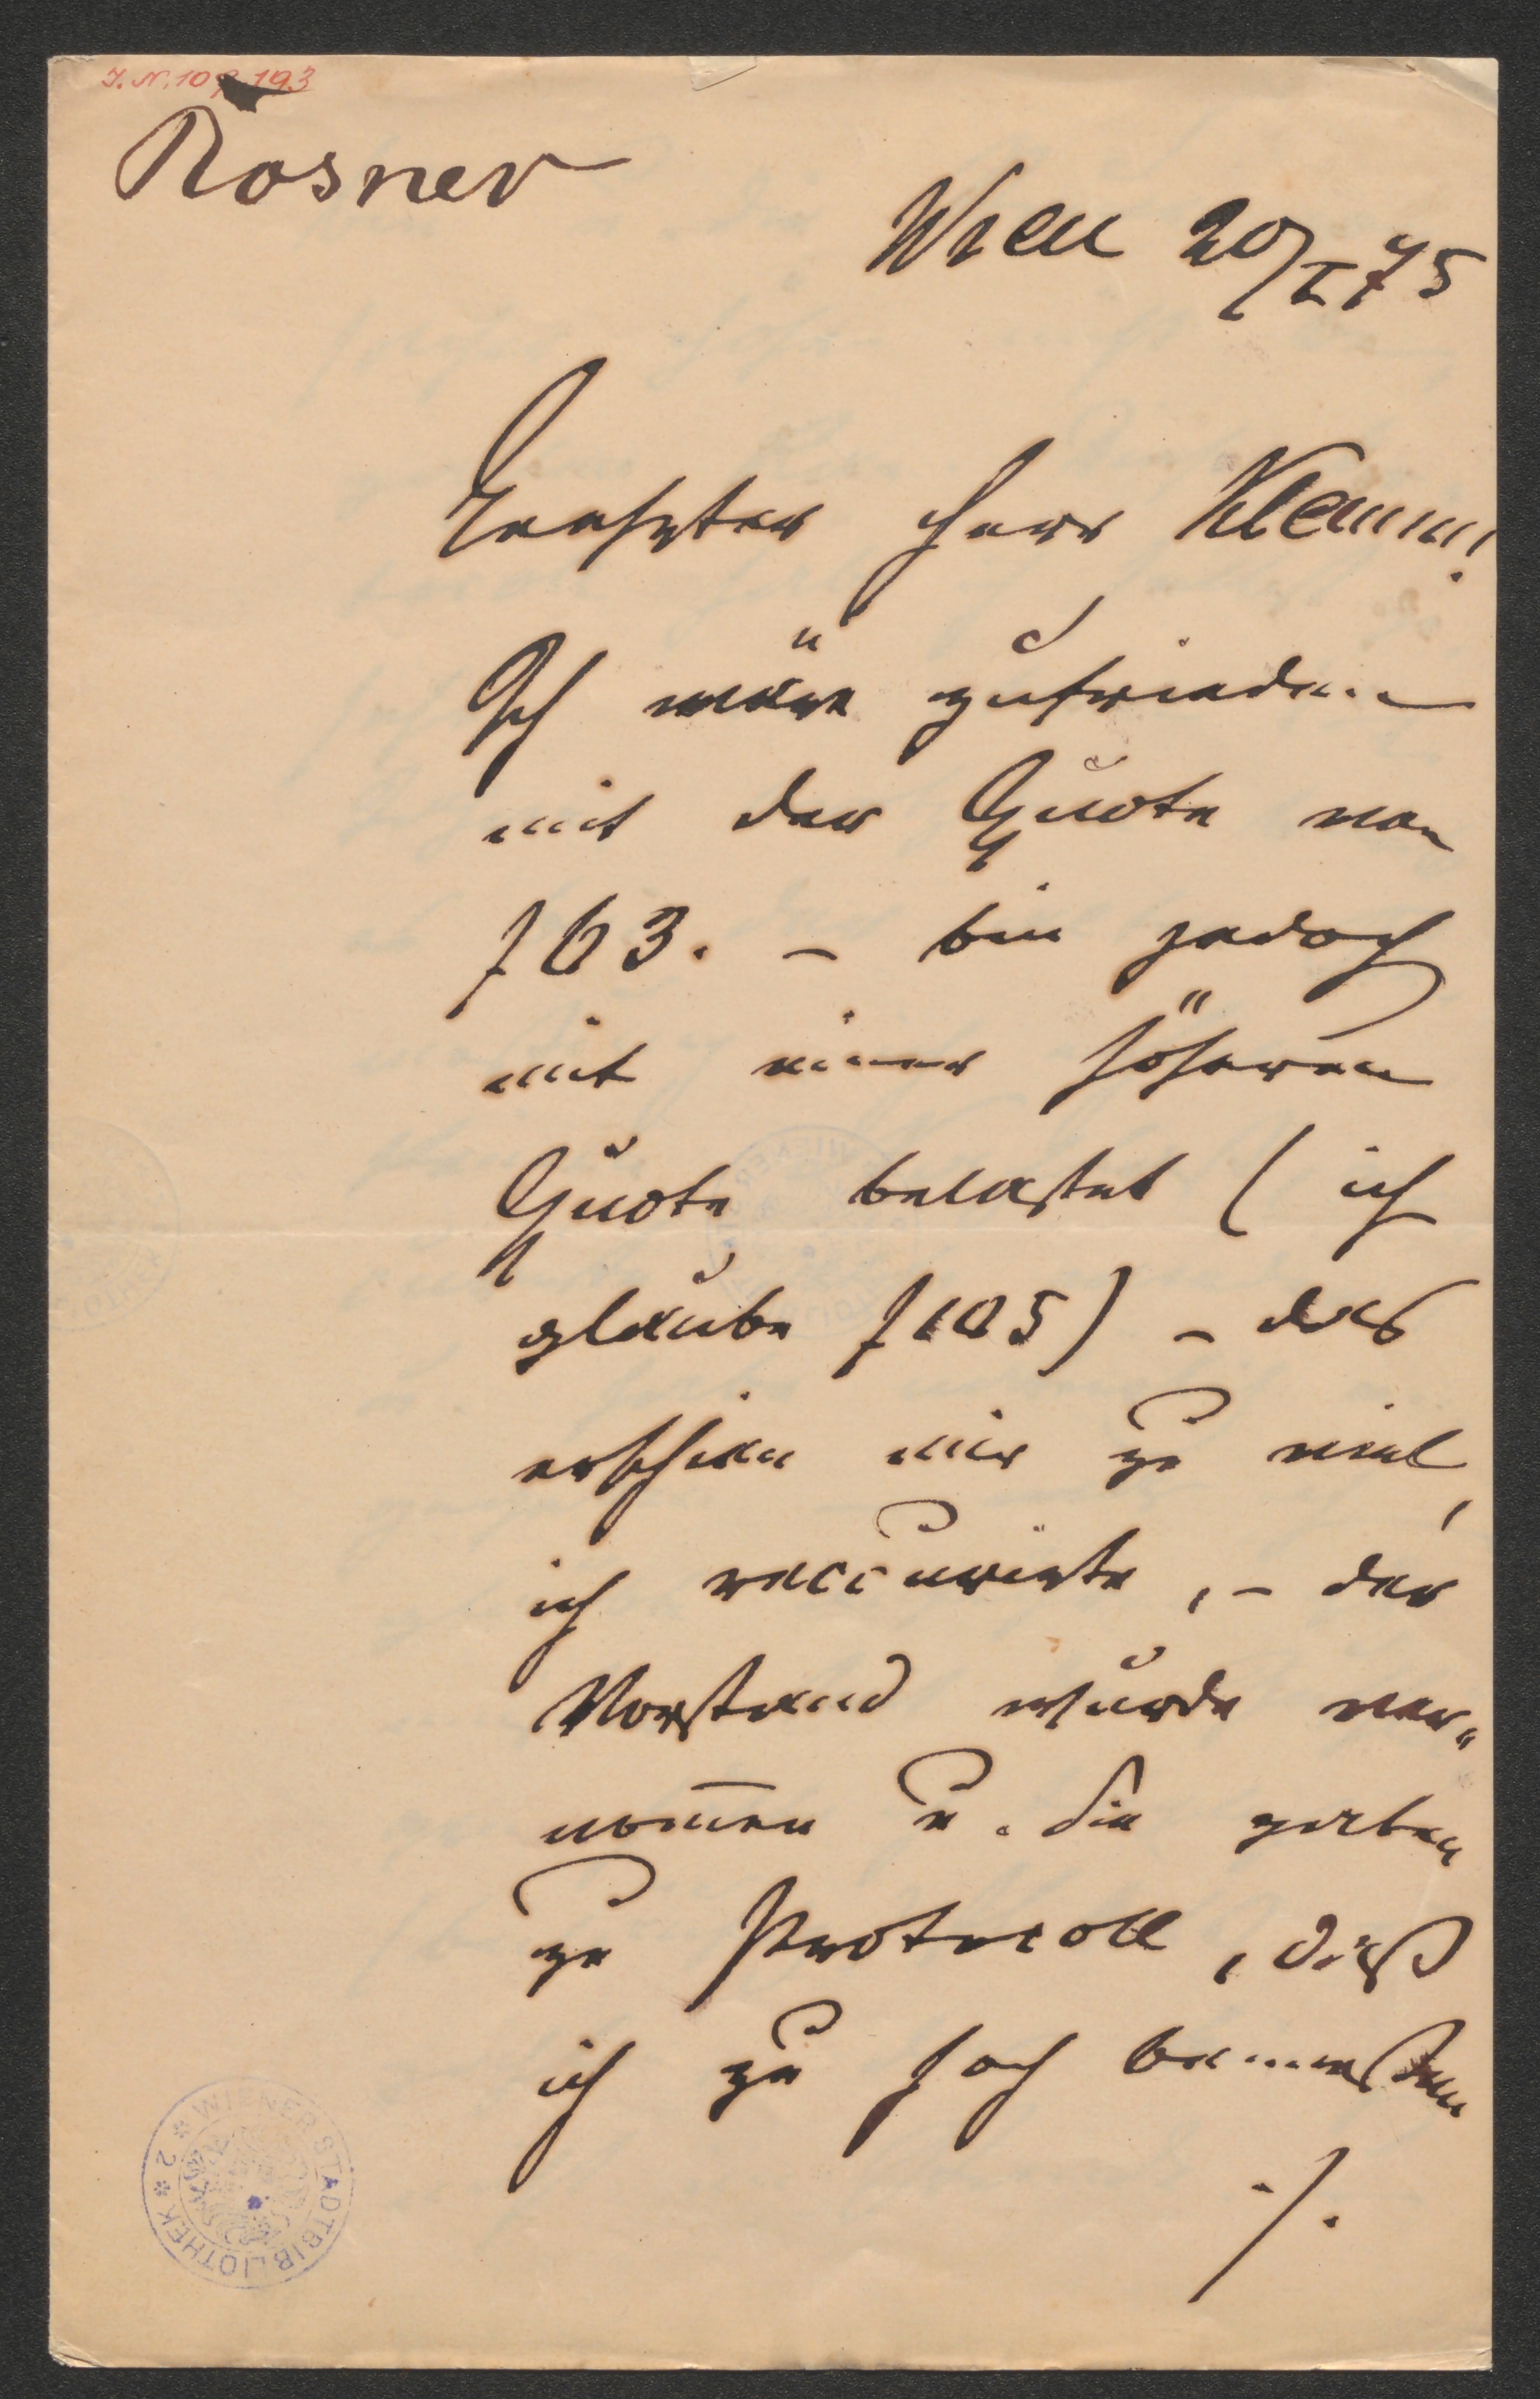 J. N. 109.193
Rosner
Wien 20/I 75
Geehrter Herr Klemm!
Ich wäre zufrieden
mit der Quote von
f 63. – bin jedoch
mit einer höheren
Quote belastet (ich
glaube f 105) – das
erschien mir zu viel,
ich reccurirte, – der
Vorstand wurde ver„
nom̅en u. die gaben
zu Protocoll, daß
ich zu hoch bemessen
./.
WIENER STADTBIBLIOTHEK * 2 *